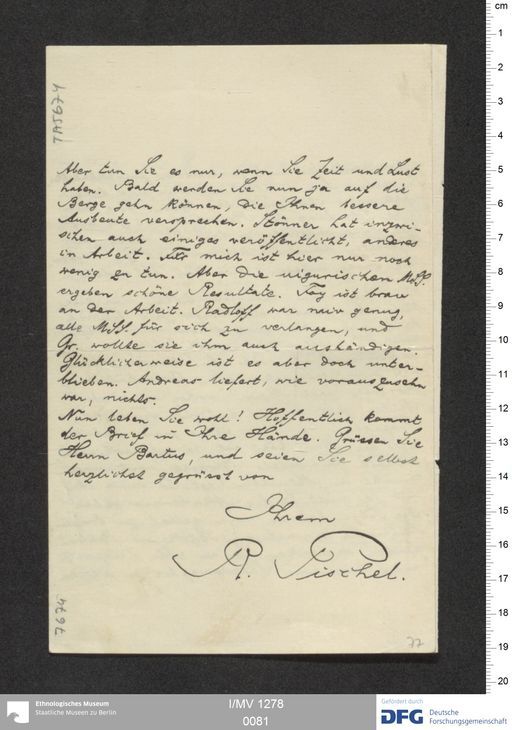 TA5674
Aber tun Sie es nur, wenn Sie Zeit und Lust
haben. Bald werden Sie nun ja auf die
Berge gehn können, die Ihnen bessere
Ausbeute versprechen. Stönner hat inzwi-
schen auch einiges veröffentlicht, anderes
in Arbeit. Für mich ist hier nur noch
wenig zu tun. Aber die uigurischen MSS.
ergeben schöne Resultate. Foy ist brav
an der Arbeit. Radloff war naiv genug,
alle MSS. für sich zu verlangen, und
Gr. wollte sie ihm auch aushändigen.
Glücklicherweise ist es aber doch unter-
blieben. Andreas liefert, wie vorauszusehn
war, nichts.
Nun leben Sie wohl! Hoffentlich kommt
der Brief in Ihre Hände. Grüssen Sie
Herrn Bartus, und seien Sie selbst
herzlichst gegrüsst von
Ihrem
R. Pischel.
7674
77
cm
1
2
3
4
5
6
7
8
9
10
11
12
13
14
15
16
17
18
19
20
Ethnologisches Museum
Staatliche Museen zu Berlin
I/MV 1278
0081
Gefördert durch
DFG
Deutsche
Forschungsgemeinschaft